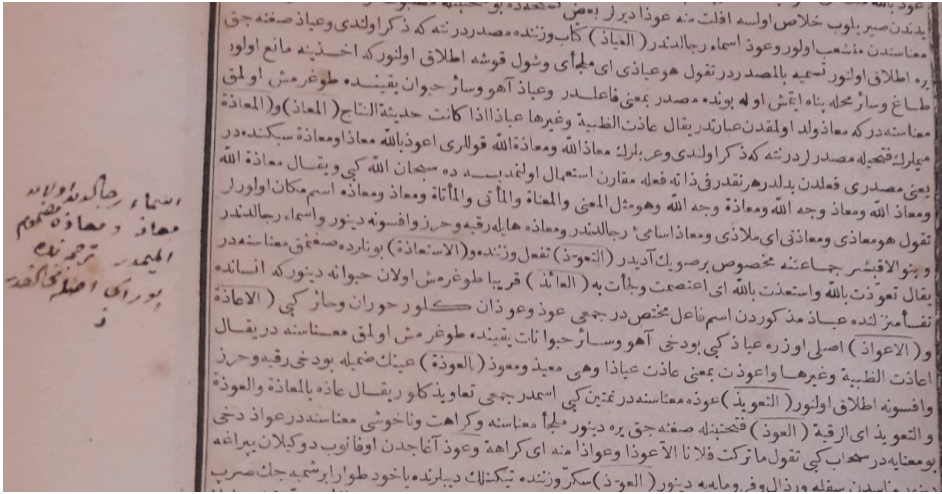 یدندن صیریلوب خلاص اولسه افلت منه عوذا دیرلر بعض
معناسندن منشعب اولور وعوذ اسماء رجالدندر (العیاذ) کتاب وزننده مصدردر نته که ذکر اولندی وعیاذ صغنه جق
یره اطلاق اولنور تسمیه بالمصدردر تقول هو عیاذی ای ملجأی وشول قوشه اطلاق اولنور که اخذینه مانع اولور
طاغ وسائر محله پناه ایتمش اوله بونده مصدر بمعنی فاعلدر وعیاذ آهو وسائر حیوان یقینده طوغرمش اولمق
معناسنه در که معاذ ولد اولمقدن عبارتدر یقال عاذت الظبیة وغیرها عیاذا اذا کانت حدیثة النتاج (المعاذ) و (المعاذة
میملرك فتحیله مصدرلردر نته که ذکر اولندی وعربلرك معاذ الله ومعاذة الله قوللری اعوذ بالله معاذا ومعاذة سبکنده در
یعنی مصدری فعلدن بدلدر هر نقدر فی ذاته فعله مقارن استعمال اولنمدیسه ده سبحان الله کبی ویقال معاذة الله
ومعاذ الله ومعاذ وجه الله ومعاذة وجه الله وهو مثل المعنی والمعناة والمأتی والمأتاة ومعاذ ومعاذه اسم مکان اولورلر
تقول هو معاذی ومعاذتی ای ملاذی ومعاذ اسامئ رجالدندر ومعاذه هایله رقیه وحرز وافسونه دینور واسماء رجالدندر
وبنو الاقیشر جماعتنه مخصوص بر صویك آدیدر (التعوذ) تفعل وزننده و (الاستعاذة) بونلرده صغنمق معناسنه در
یقال تعوذت بالله واستعذت بالله ای اعتصمت ولجأت به (العائذ) قریبا طوغرمش اولان حیوانه دینور که انسانده
نفسأ منزلنده عیاذ مذکوردن اسم فاعل مختص در جمعی عوذ وعوذان کلور حوران وحائر کبی (الاعاذة
و (الاعواذ) اصلی اوزره عیاذ کبی بودخی آهو وسائر حیوانات یقینده طوغرمش اولمق معناسنه در یقال
اعاذت الظبیة وغیرها واعوذت بمعنی عاذت عیاذا وهی معیذ ومعوذ (العوذة) عینك ضمیله بودخی رقیه وحرز
وافسونه اطلاق اولنور (التعویذ) عوذه معناسنه در تمتین کبی اسمدر جمعی تعاویذ کلور یقال عاذه بالمعاذة والعوذة
والتعویذ ای الرقیة (العوذ) فتحتینله صغنه جق یره دینور ملجأ معناسنه وکراهت وناخوشی معناسنه در عواذ دخی
بو معنایه در سحاب کبی تقول ما ترکت فلانا الا عوذا وعواذا منه ای کراهة وعوذ آغاجدن اوفانوب دوکیلان یپراغه
(العوّذ) سکر وزننده تیکنلك دیبلرنده یاخود طوار ایرشمیه جك صرپ
اسماء رجالدن اولان
معاذ ومعاذة مضموم
المیمدر ترجمه نده
بورالری